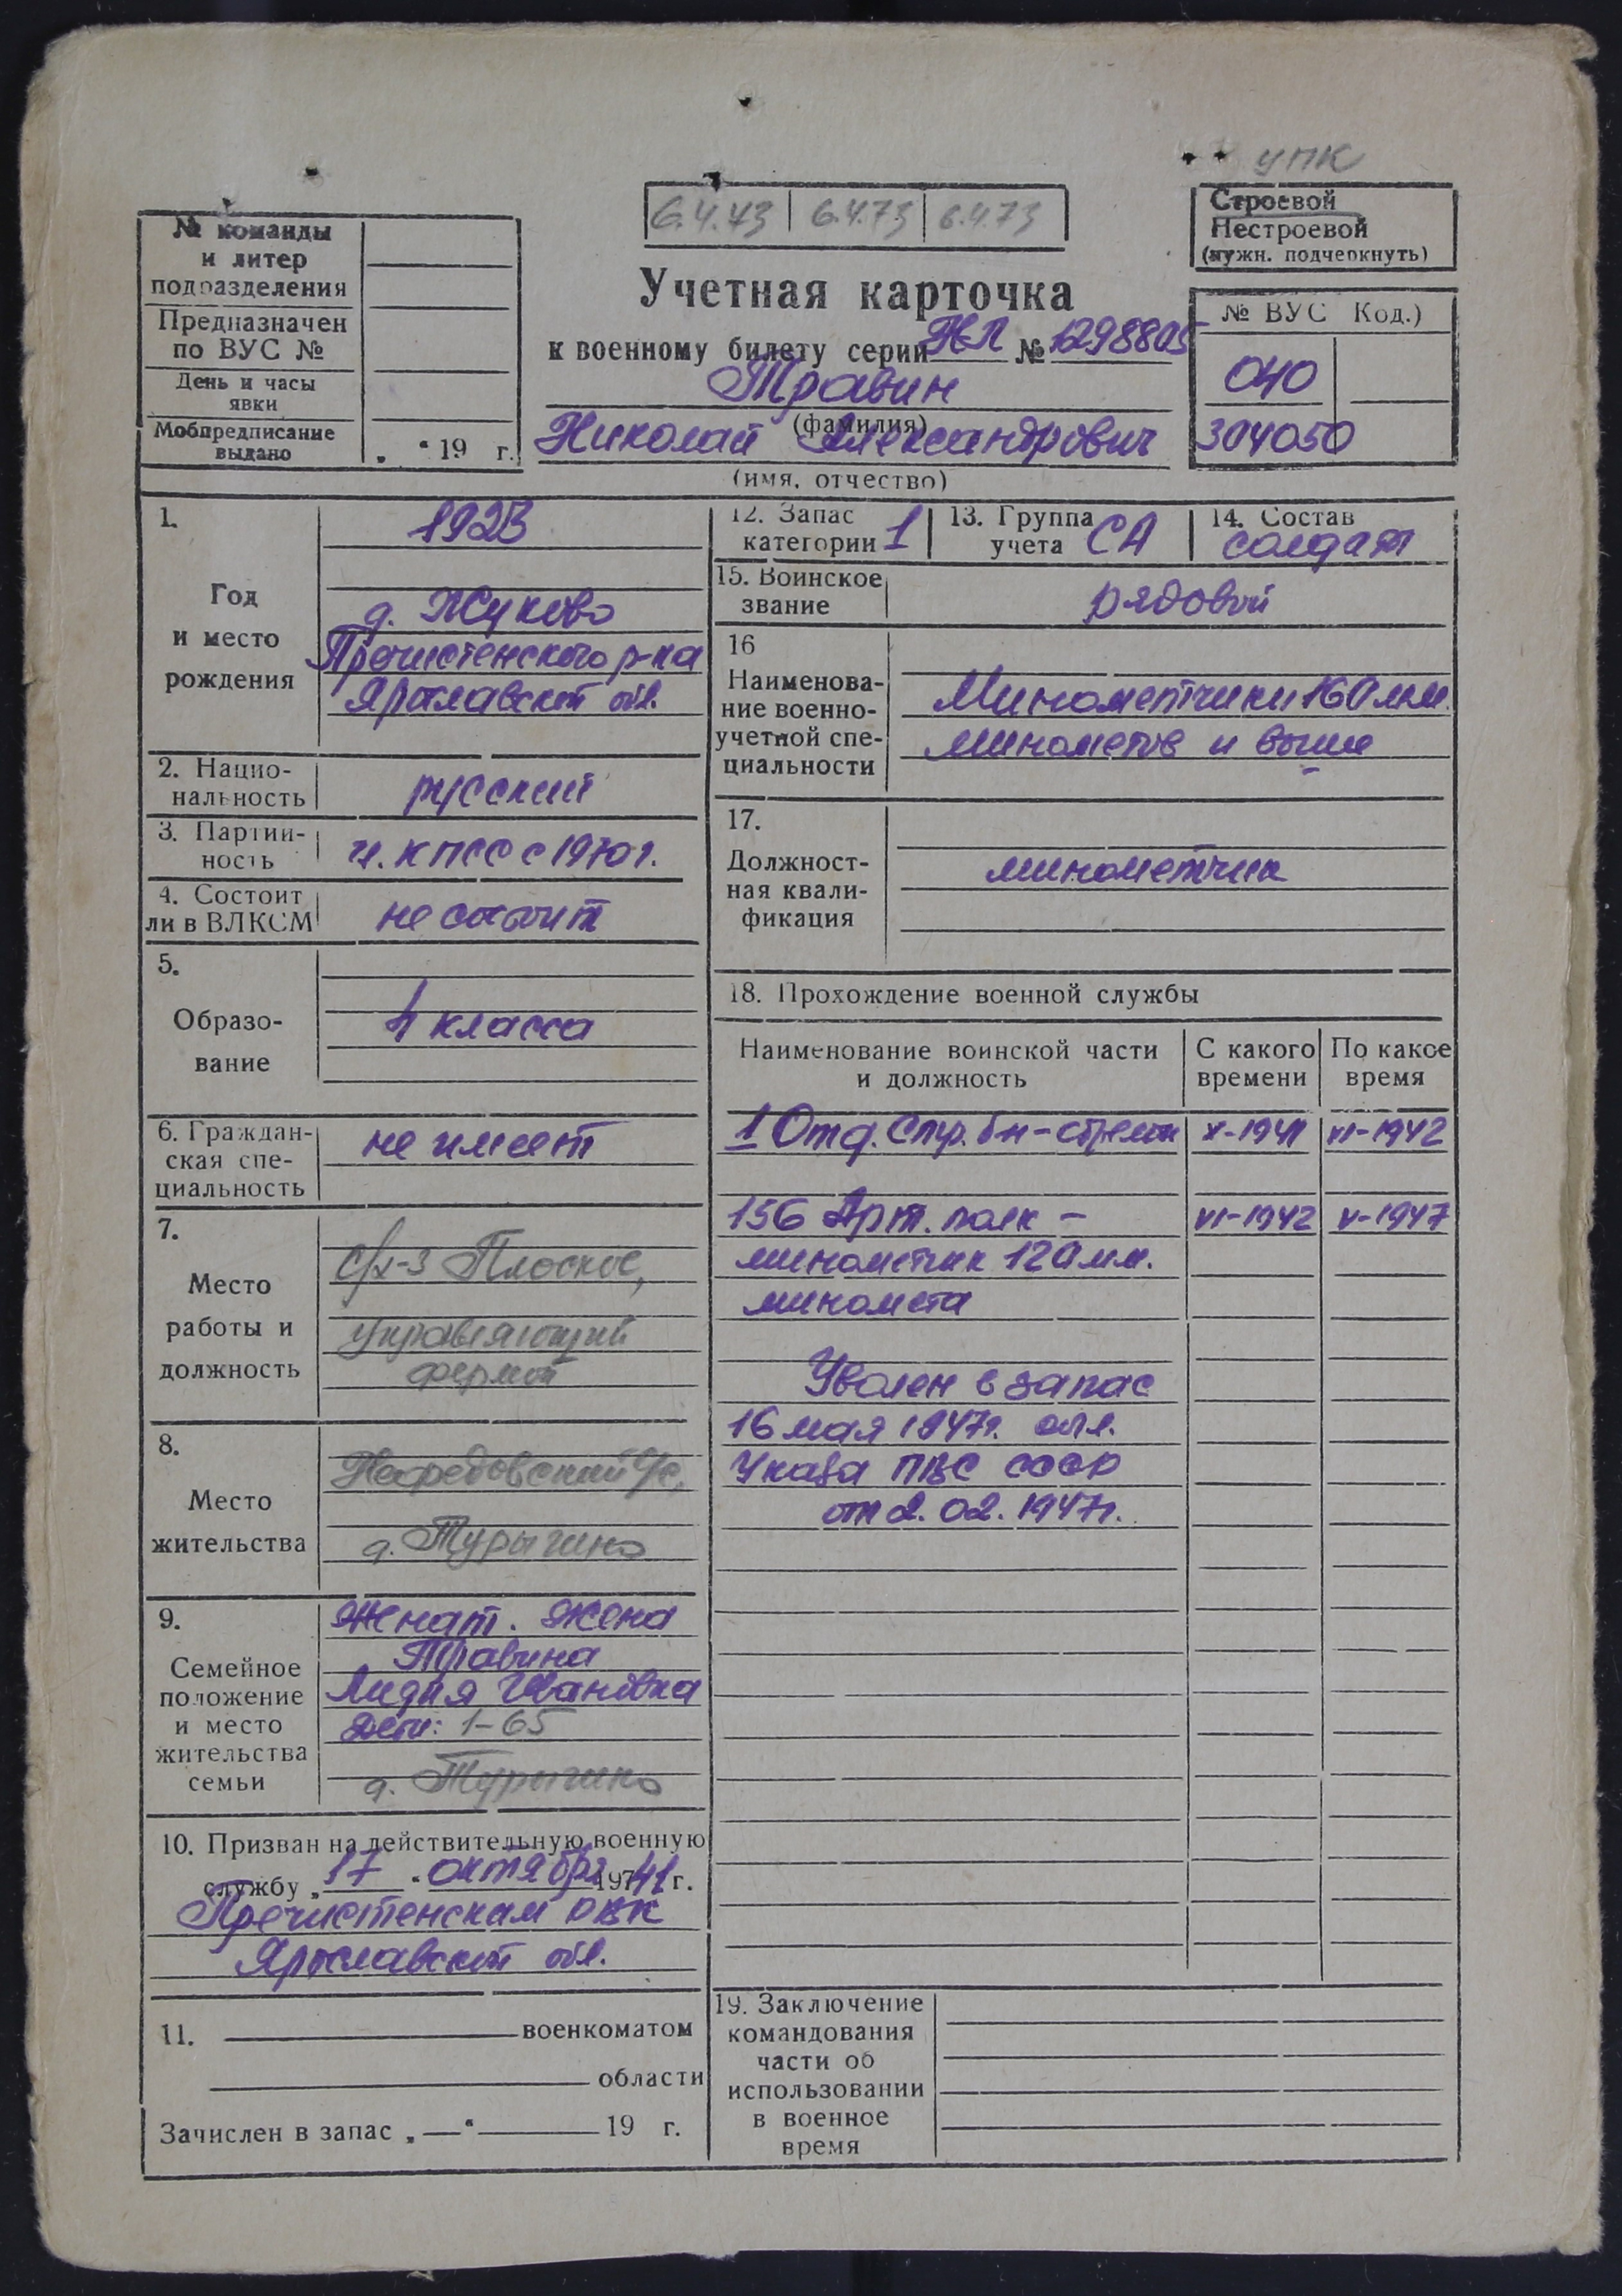 УПК
6.4.73 6.4.73 6.4.73
Строевой
Нестроевой
(нужн. подчеркнуть)
№ команды
и литер
подразделения
Предназначен
по ВУС №
День и часы
явки
Мобпредписание
выдано „ “ 19 г.
Учетная карточка
к военному билету серии НЛ № 1298805
Травин
(фамилия)
Николай Александрович
(имя, отчество)
№ ВУС Код.)
040
304050
1.
Год
и место
рождения
1923
д. Жуково
Пречистенского р-на
Ярославской обл.
2. Нацио-
нальность
русский
3. Партий-
ность
чл. КПСС с 1970 г.
4. Состоит
ли в ВЛКСМ
не состоит
5.
Образо-
вание
4 класса
6. Граждан-
ская спе-
циальность
не имеет
7.
Место
работы и
должность
с/х-з Плоское,
управляющий
фермой
8.
Место
жительства
с/с,
д. Турыгино
9.
Семейное
положение
и место
жительства
семьи
Женат. Жена
Травина
Лидия Ивановна
Дети: 1-65
д. Турыгино
10. Призван на действительную военную
службу „17“ октября 1941 г.
Пречистенским РВК
Ярославской обл.
11. военкоматом
области
Зачислен в запас „ “ 19 г.
12. Запас
категории 1
13. Группа
учета СА
14. Состав
солдат
15. Воинское
звание
рядовой
16
Наименова-
ние военно-
учетной спе-
циальности
Минометчики 160 мм.
минометов и выше
17.
Должност-
ная квали-
фикация
минометчик
18. Прохождение военной службы
Наименование воинской части
и должность
С какого
времени
По какое
время
1 Отд. Стр. бн-стрелок X-1941 VI-1942
156 Арт. полк - VI-1942 V-1947
минометчик 120 мм.
миномета
Уволен в запас
16 мая 1947г.
Указа ПВС СССР
от 2.02.1947г.
19. Заключение
командования
части об
использовании
в военное
время